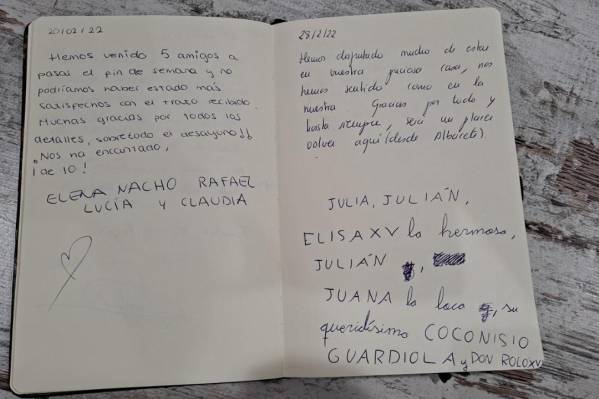 20/02/22
Hemos venido 5 amigos a
pasar el fin de semana y no
podríamos haber estado más
satisfechos con el trato recibido.
Muchas gracias por todos los
detalles, sobretodo el desayuno!!
¡Nos ha encantado,
¡de 10!
ELENA NACHO RAFAEL
LUCÍA Y CLAUDIA
28/2/22
Hemos disfrutado mucho de estar
en vuestra preciosa casa, nos
hemos sentido como en la
nuestra. Gracias por todo y
hasta siempre, será un placer
volver aquí (desde Albacete).
JULIA, JULIÁN,
ELISA XV la hermosa,
JULIÁN ,
JUANA la loca , su
queridísimo COCONISIO
GUARDIOLA y DON ROLO XV